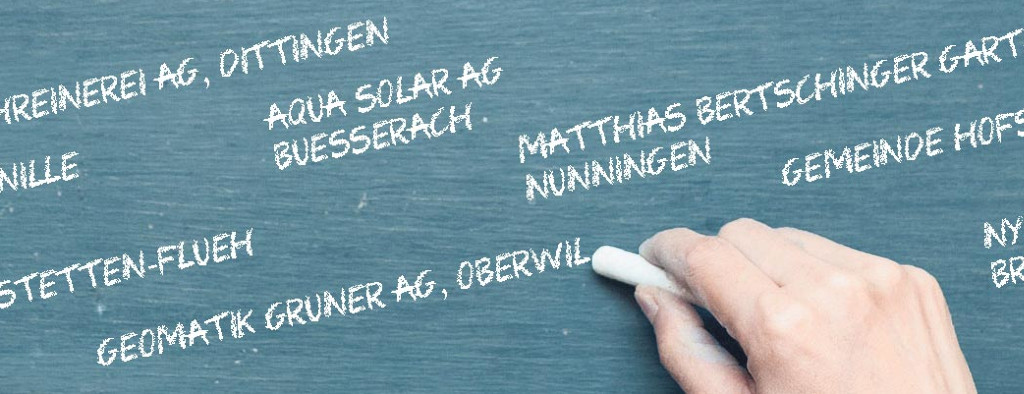 HREINEREI AG, DITTINGEN
AQUA SOLAR AG
BUESSERACH
MATTHIAS BERTSCHINGER GART
NUNNINGEN
GEMEINDE HOFS
NILLE
STETTEN-FLUEH
GEOMATIK GRUNER AG, OBERWIL
NY
BR